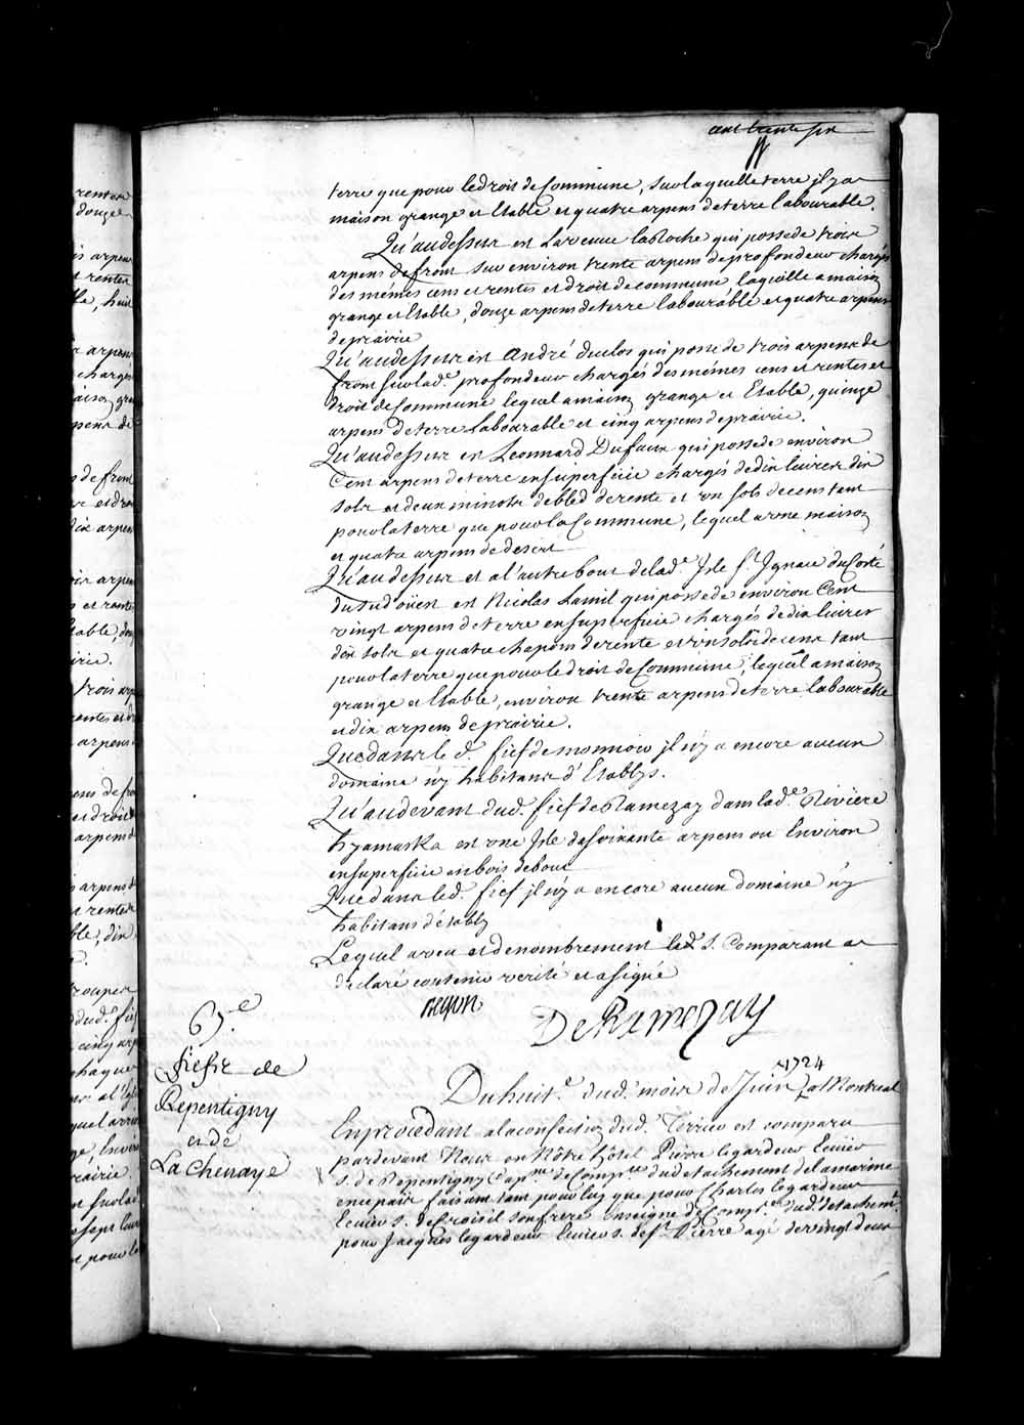 cent trente six
terre que pour le droit de Commune, sur laquelle terre il y a
maison grange et Etable et quatre arpens de terre labourable.
Qu'audessus est Laveuue laRoche qui possede trois
arpens de front sur environ trente arpens de profondeur chargés
des mêmes cens et rentes et droit de commune, laquelle a maison
grange et Etable, douze arpens de terre labourable et quatre arpens
de prairie
Qu'audessus est André duclos qui possede trois arpens de
front sur lad.e profondeur chargés des mêmes cens et rentes et
droit de Commune lequel a maison grange et Etable, quinze
arpens de terre labourable et cinq arpens de prairie.
Qu'audessus est Leonnard Dufaux qui possede environ
Cent arpens de terre en superficie chargés de dix livres dix
sols et deux minots de bled de rente et un sols de cens tant
pour la terre que pour la Commune, lequel a une maison
et quatre arpens de desert
Qu'audessus et a l'autre bout de lad.e Isle S.t Ignace du Costé
du Sud oüest est Nicolas Lamil qui possede environ Cent
vingt arpens de terre en superficie chargés de dix livres
dix sols et quatre chapons de rente et un sols de cens tant
pour la terre que pour le droit de Commune, lequel a maison
grange et Etable, environ trente arpens de terre labourable
et dix arpens de prairie.
Que dans le d. fief de monnoir il n'y a encore aucun
domaine n'y habitans d'Etablys.
Qu'audevant dud. fief de Ramezay dans lad.e Riviere
hyamaska est une Isle de soixante arpens ou Environ
en superficie en bois debout
Que dans led. fief il n'y a encore aucun domaine n'y
habitans d'établÿ
Lequel aveu et denombrement led. S. Comparant a
declaré contenir verité et a signé
DeRamezay
6[7].e
fiefs de
Repentigny
et de
La Chenaye
1724
Du huit.e dud. mois de Juin a Montreal
En procedant a la confection dud. Terrier est comparu
pardevant Nous en Nôtre hôtel Pierre legardeur Ecuier
S. de Repentigny Cap.ne de Comp.ie du detachement de la marine
en ce païs faisant tant pour luy que pour Charles legardeur
Ecuier S. de Croisil son frere enseigne de Comp.ie dud. detachem.t
pour Jacques legardeur Ecuier S. de S.t Pierre agé de vingt deux